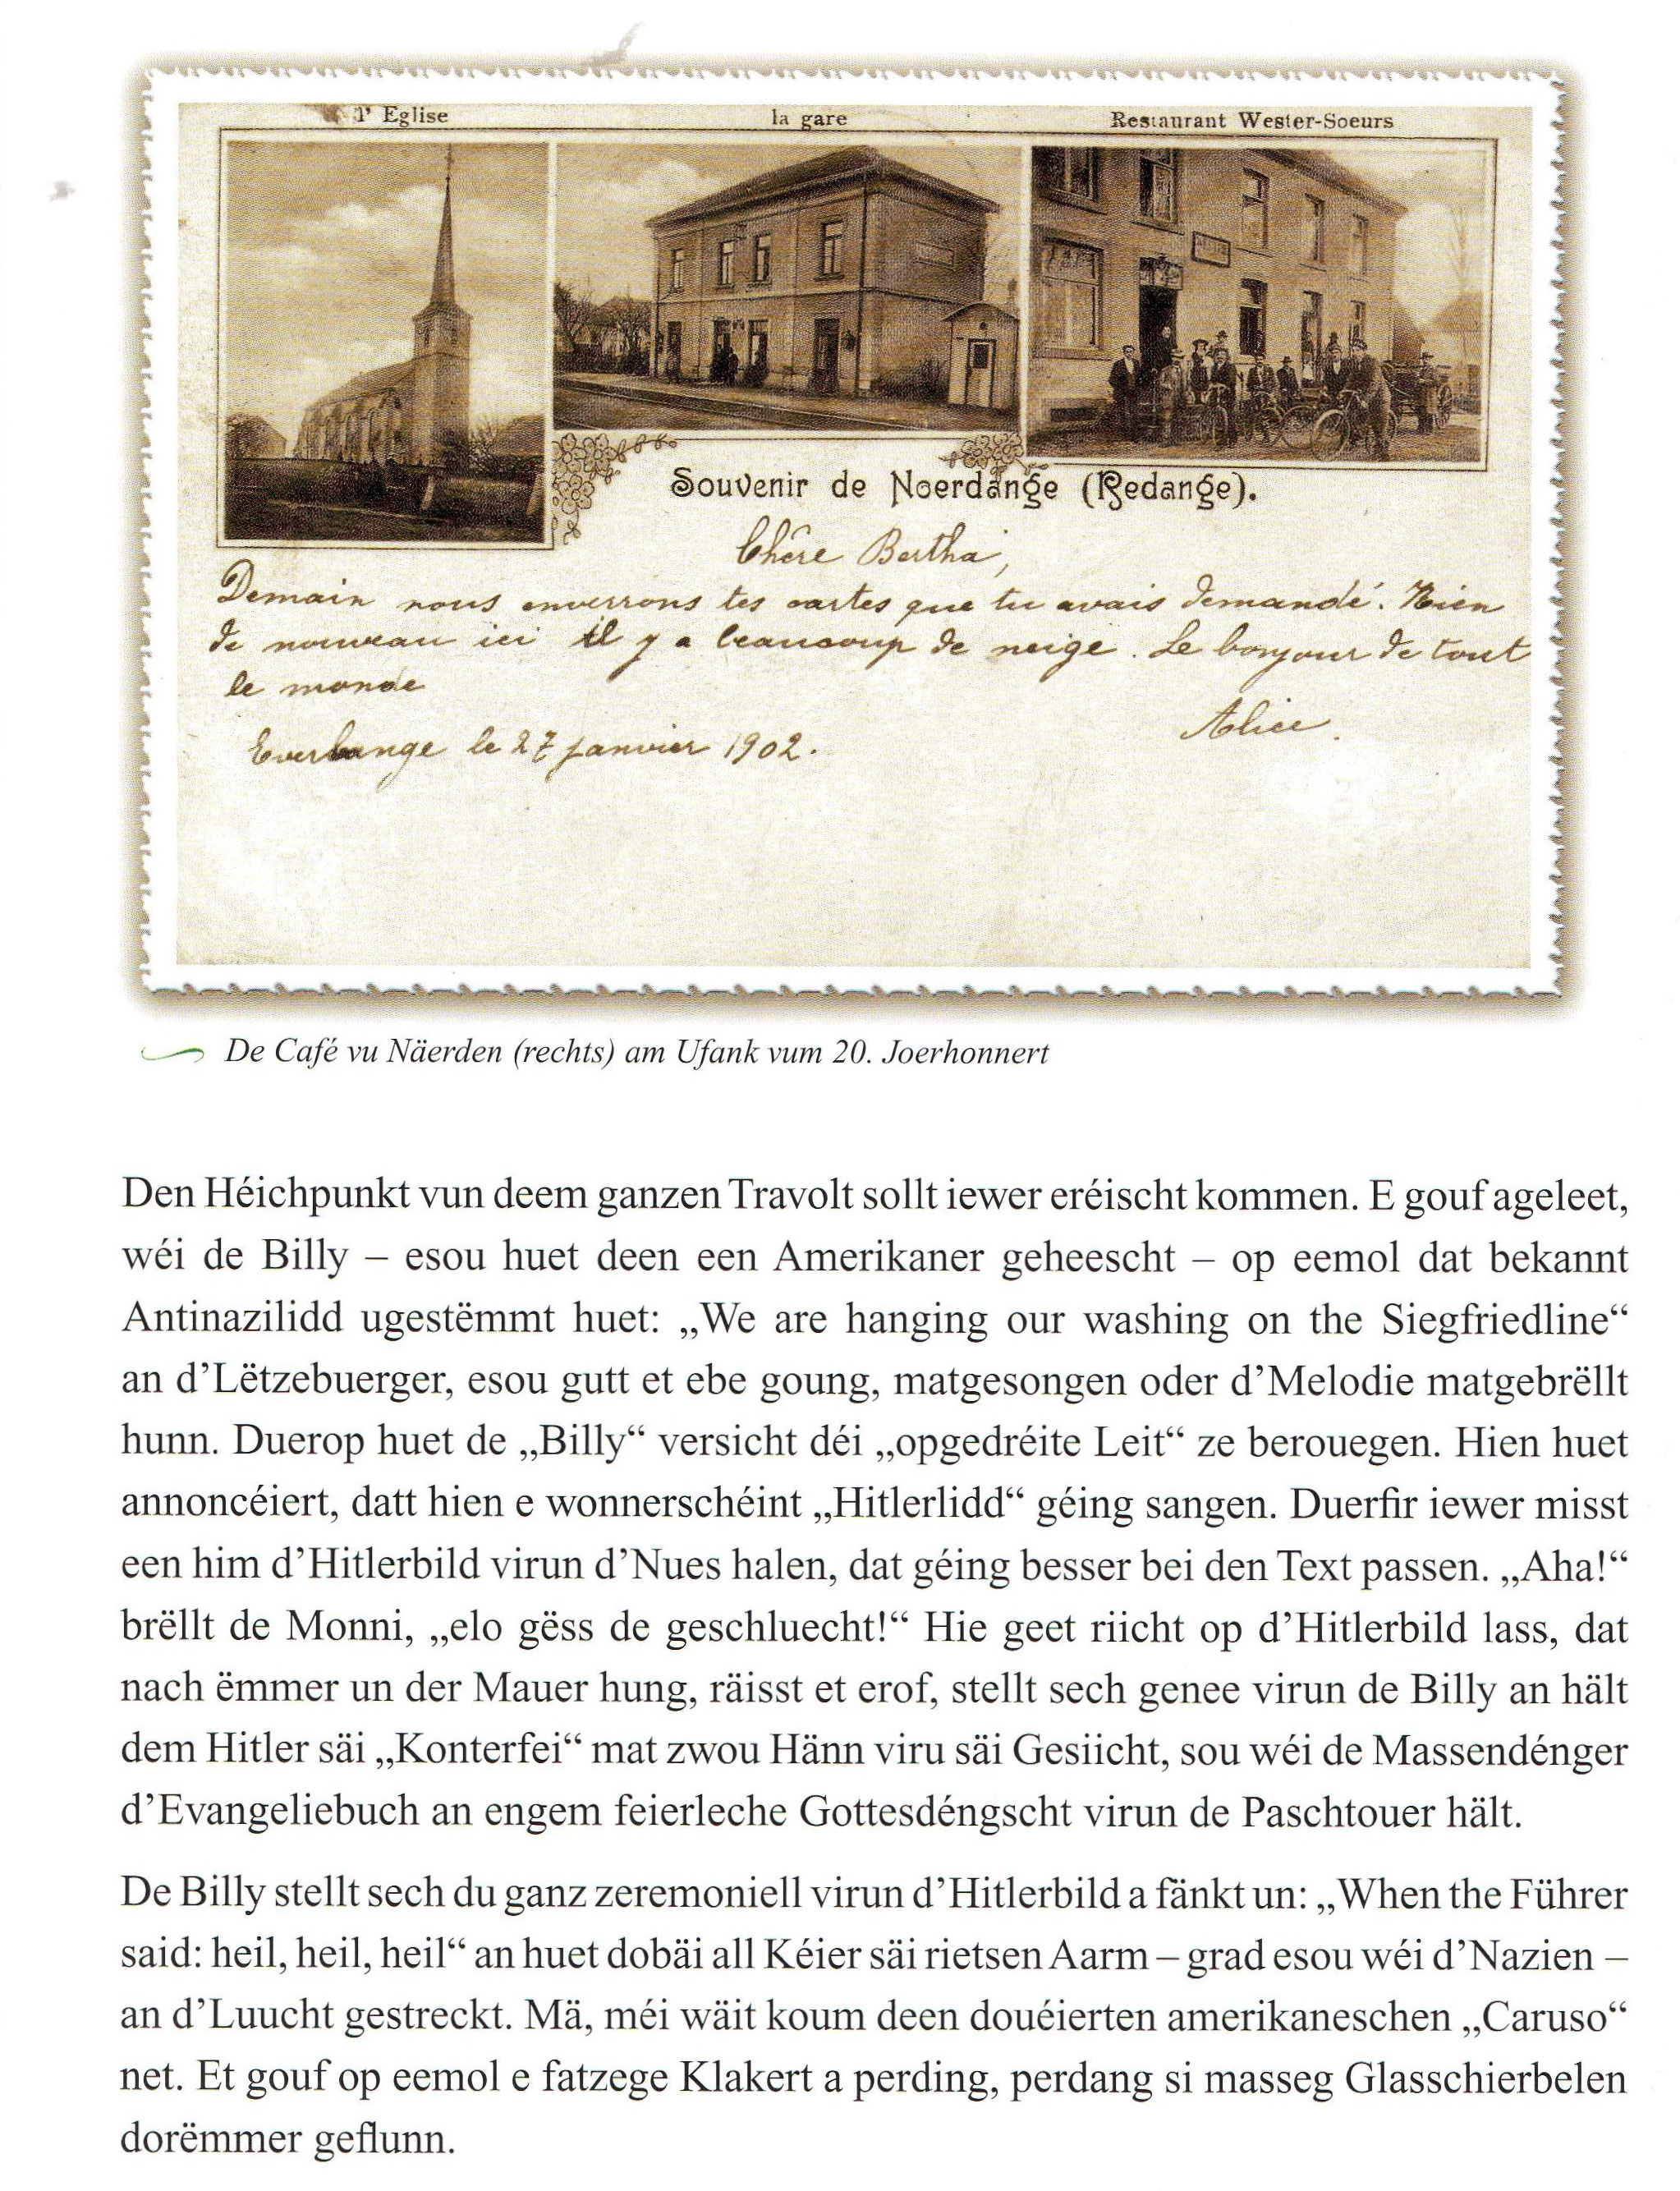 l'Eglise
la gare
Restaurant Wester-Soeurs
Souvenir de Noerdange (Redange).
Chère Bertha,
Demain nous enverrons tes cartes que tu avais demandé. Rien
de nouveau ici il y a beaucoup de neige. Le bonjour de tout
le monde
Alice.
Everlange le 27 janvier 1902.
De Café vu Näerden (rechts) am Ufank vum 20. Joerhonnert
Den Héichpunkt vun deem ganzen Travolt sollt iewer eréischt kommen. E gouf ageleet,
wéi de Billy – esou huet deen een Amerikaner geheescht – op eemol dat bekannt
Antinazilidd ugestëmmt huet: „We are hanging our washing on the Siegfriedline“
an d’Lëtzebuerger, esou gutt et ebe goung, matgesongen oder d’Melodie matgebrëllt
hunn. Duerop huet de „Billy“ versicht déi „opgedréite Leit“ ze berouegen. Hien huet
annoncéiert, datt hien e wonnerschéint „Hitlerlidd“ géing sangen. Duerfir iewer misst
een him d’Hitlerbild virun d’Nues halen, dat géing besser bei den Text passen. „Aha!“
brëllt de Monni, „elo gëss de geschluecht!“ Hie geet riicht op d’Hitlerbild lass, dat
nach ëmmer un der Mauer hung, räisst et erof, stellt sech genee virun de Billy an hält
dem Hitler säi „Konterfei“ mat zwou Hänn viru säi Gesiicht, sou wéi de Massendénger
d’Evangeliebuch an engem feierleche Gottesdéngscht virun de Paschtouer hält.
De Billy stellt sech du ganz zeremoniell virun d’Hitlerbild a fänkt un: „When the Führer
said: heil, heil, heil“ an huet dobäi all Kéier säi rietsen Aarm – grad esou wéi d’Nazien –
an d’Luucht gestreckt. Mä, méi wäit koum deen douéierten amerikaneschen „Caruso“
net. Et gouf op eemol e fatzege Klakert a perding, perdang si masseg Glasschierbelen
dorëmmer geflunn.